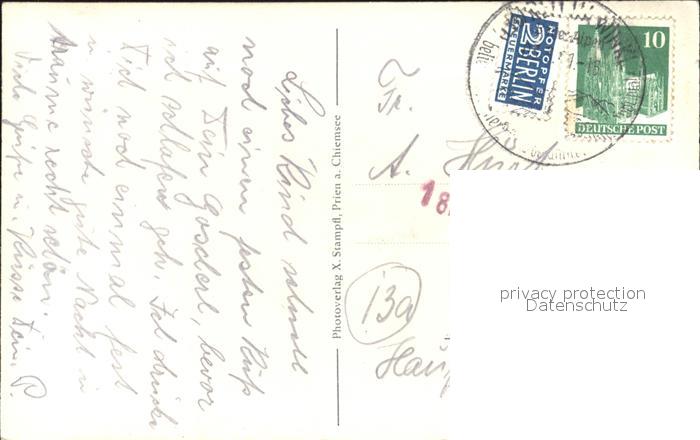 Liebes Kind schnell
noch einen festen Kuß
auf Dein Goscherl, bevor
ich schlafen geh. Ich drücke
Dich noch einmal fest
u. wünsche gute Nacht u.
träume recht schön.
Viele Grüße u. Küsse Dein P.
Photoverlag X. Stampfl, Prien a. Chiemsee
NOTOPFER
2 BERLIN
STEUERMARKE
10
DEUTSCHE POST
Fr.
A.
18
13a
privacy protection
Datenschutz